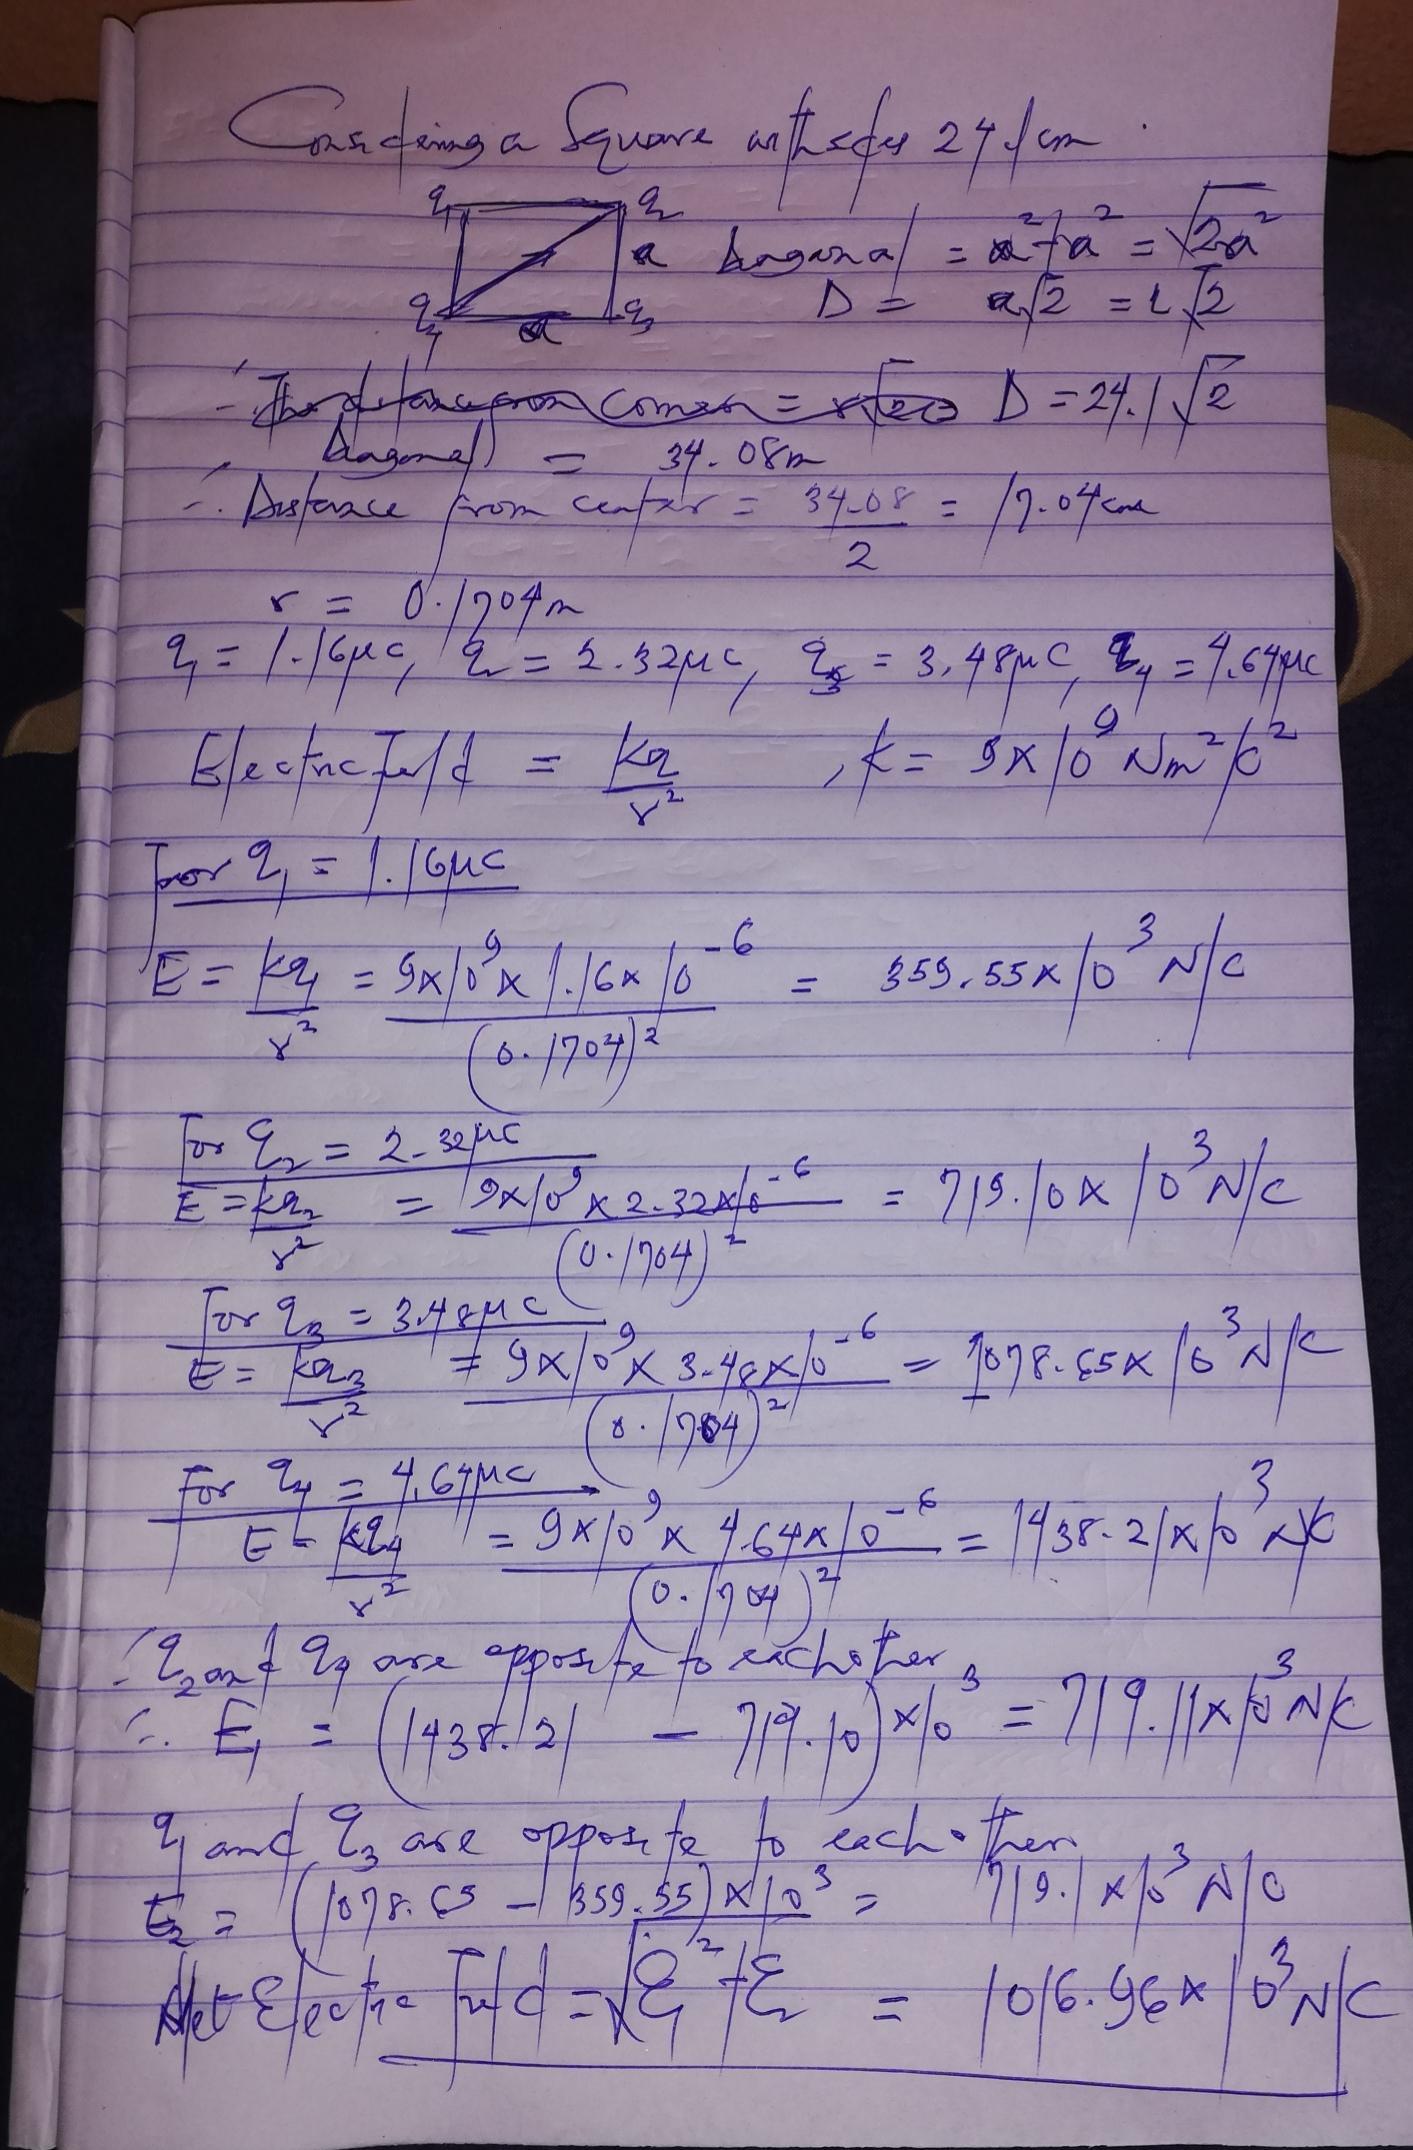 Considering a Square with sides 24.1cm.
q1 q2
a Diagonal = a²+a² = √2a²
q4 a q3 D = a√2 = L√2
∴ The distance from corner = D = 24.1√2
Diagonal = 34.08m
∴ Distance from center = 34.08/2 = 17.04cm
r = 0.1704m
q1 = 1.16μC, q2 = 2.32μC, q3 = 3.48μC, q4 = 4.64μC
Electric Field = kq/r² , k = 9x10⁹ Nm²/C²
For q1 = 1.16μC
E = kq1/r² = 9x10⁹x1.16x10⁻⁶/(0.1704)² = 359.55x10³ N/C
For q2 = 2.32μC
E = kq2/r² = 9x10⁹x2.32x10⁻⁶/(0.1704)² = 719.10x10³ N/C
For q3 = 3.48μC
E = kq3/r² = 9x10⁹x3.48x10⁻⁶/(0.1704)² = 1078.65x10³ N/C
For q4 = 4.64μC
E = kq4/r² = 9x10⁹x4.64x10⁻⁶/(0.1704)² = 1438.21x10³ N/C
∴ q2 and q4 are opposite to each other
∴ E1 = (1438.21 - 719.10)x10³ = 719.11x10³ N/C
q1 and q3 are opposite to each other
E2 = (1078.65 - 359.55)x10³ = 719.1x10³ N/C
Net Electric Field = √E1²+E2 = 1016.96x10³ N/C